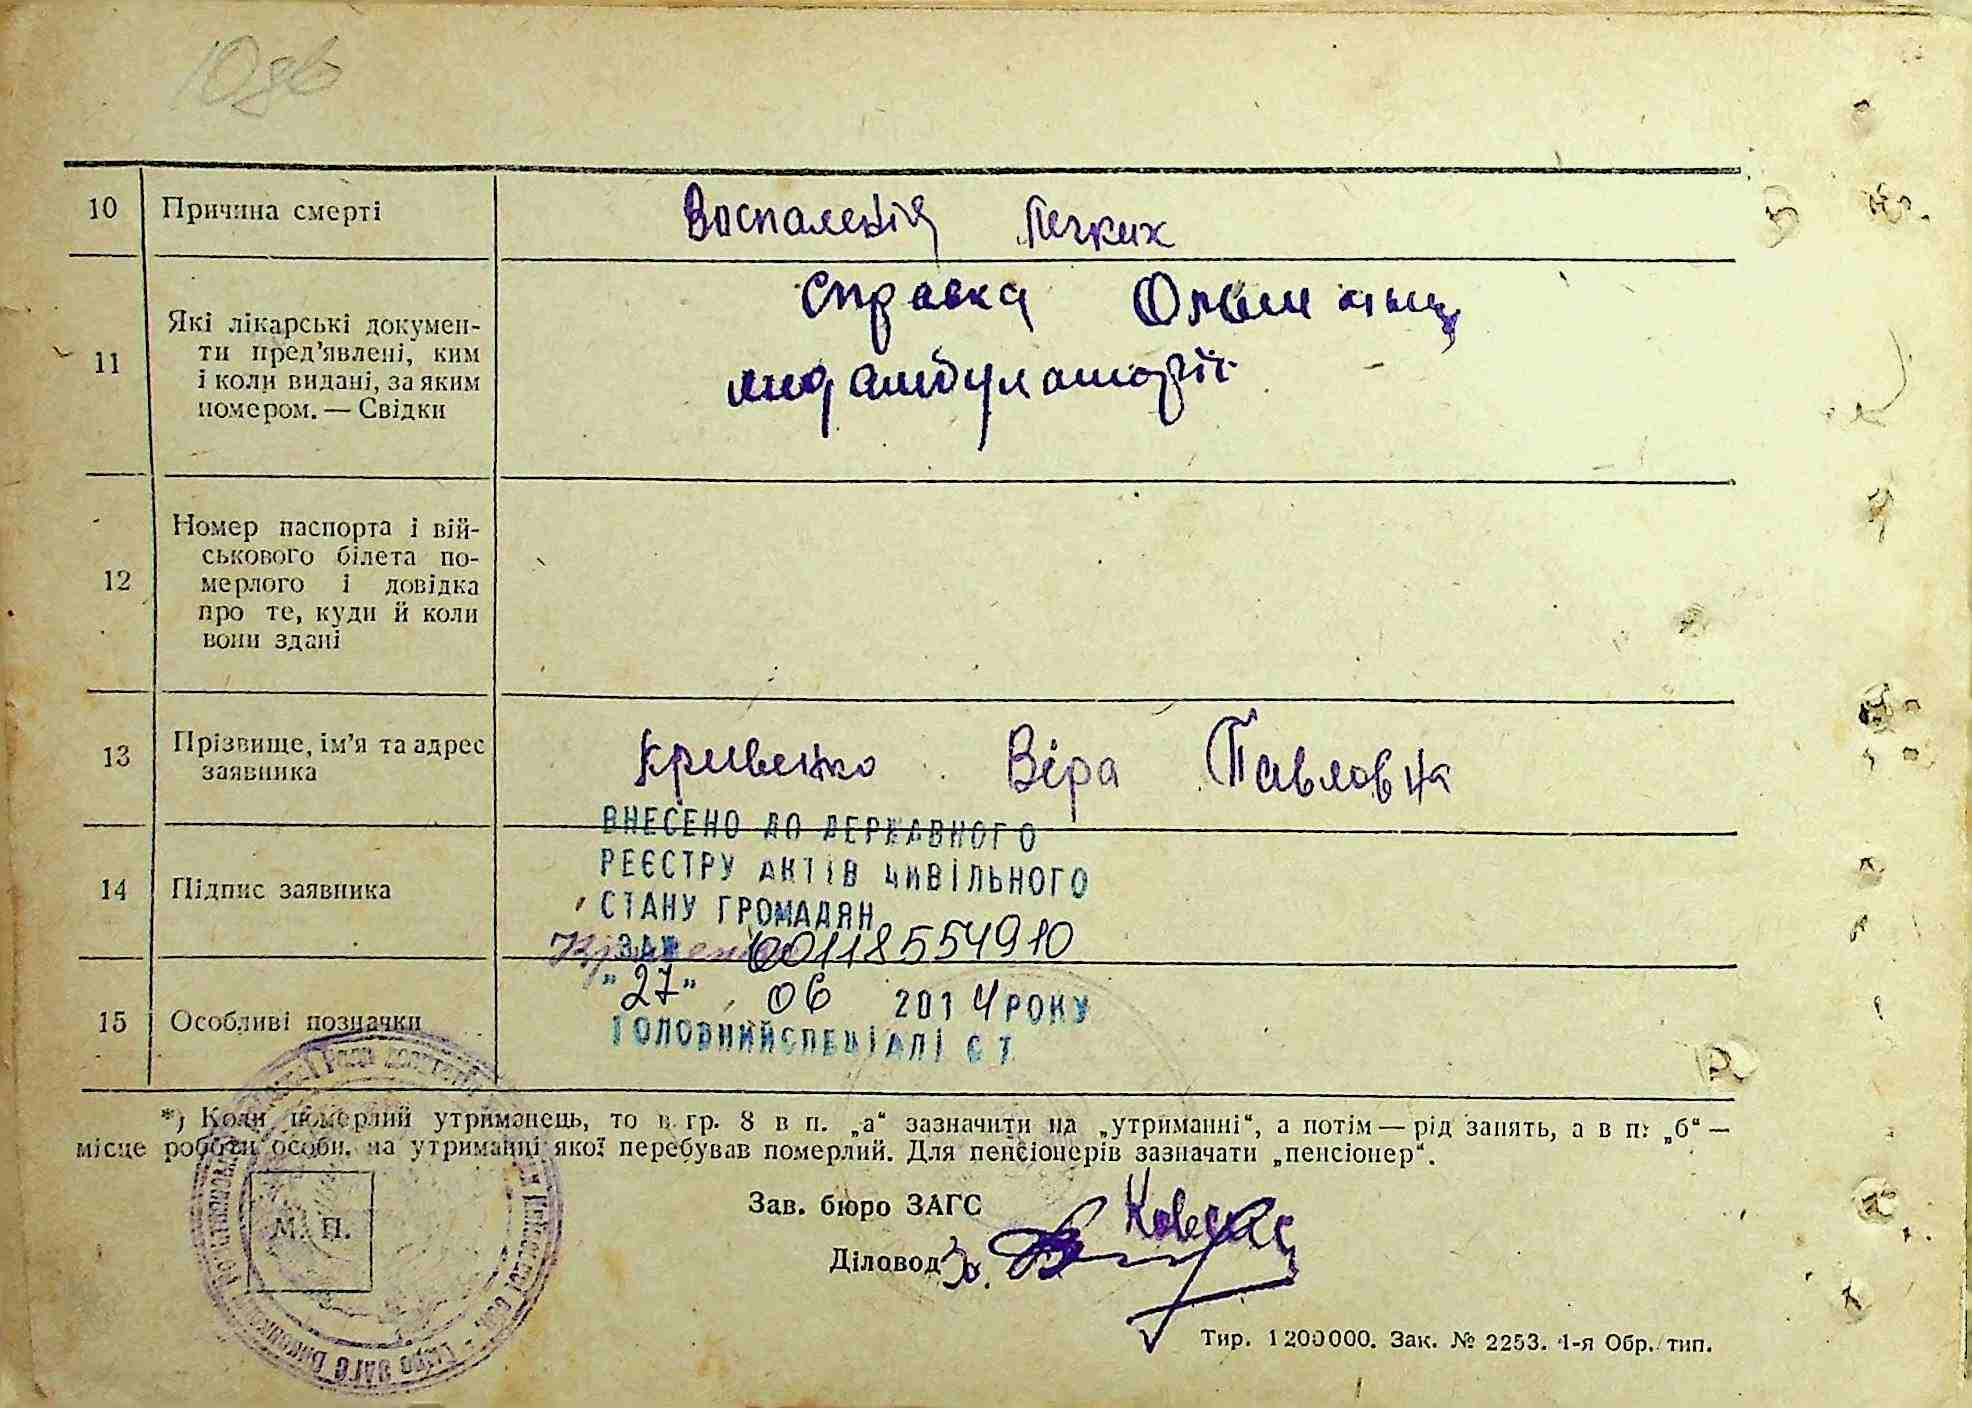 10
Причина смерті
Воспаленія Легких
11
Які лікарські докумен-
ти пред'явлені, ким
і коли видані, за яким
номером. — Свідки
справка
амбулаторіі
12
Номер паспорта і вій-
ськового білета по-
мерлого і довідка
про те, куди й коли
вони здані
13
Прізвище, ім'я та адрес
заявника
Кривенко Віра Павловна
14
Підпис заявника
ВНЕСЕНО ДО ДЕРЖАВНОГО
РЕЄСТРУ АКТІВ ЦИВІЛЬНОГО
СТАНУ ГРОМАДЯН
ЗА № 00118554910
"27" 06 2014 РОКУ
ГОЛОВНИЙ СПЕЦІАЛІСТ
15
Особливі позначки
*) Коли померлий утриманець, то в гр. 8 в п. „а“ зазначити на „утриманні“, а потім — рід занять, а в п. „б“ —
місце роботи особи, на утриманні якої перебував померлий. Для пенсіонерів зазначати „пенсіонер“.
М. П.
Зав. бюро ЗАГС
Діловод
Тир. 1200000. Зак. № 2253. 1-я Обр. тип.